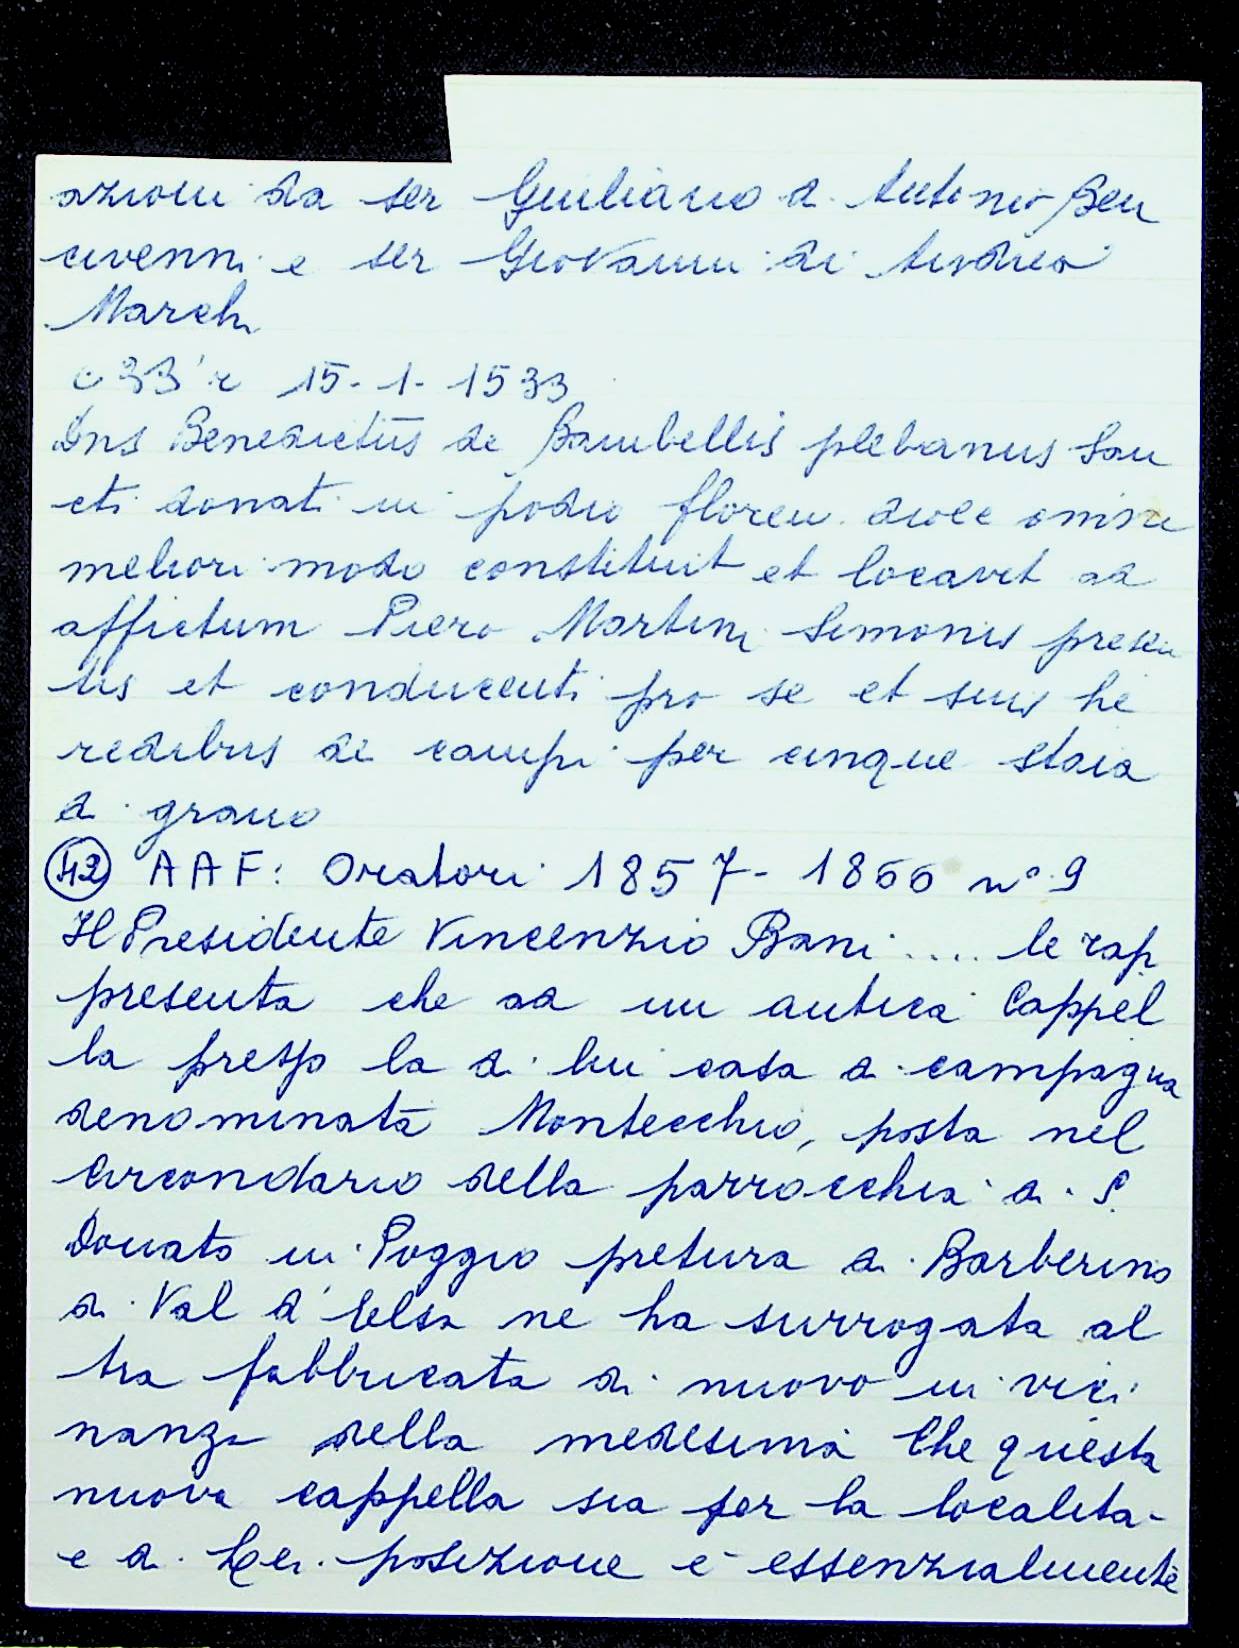 azioni da ser Giuliano di Antonio Ben
civenni e ser Giovanni di Andrea
Marchi
c 33 r 15-1-1533
Dns Benedictus de Bambellis plebanus San
cti donati in podio floren. dioce omni
meliori modo constituit et locavit ad
affictum Piero Martini Simonis presen
tis et conducenti pro se et suis he
redibus di campi per cinque staia
di grano
(42) AAF: Oratori 1857-1866 n° 9
Il Presidente Vincenzio Bani .... le rap
presenta che ad un antica Cappel
la presso la di lui casa di campagna
denominata Montecchio, posta nel
circondario della parrocchia di S.
Donato in Poggio pretura di Barberino
di Val d'Elsa ne ha surrogata al
tra fabbricata di nuovo in vici
nanza della medesima Che questa
nuova cappella sia per la localita
e di lei posizione è essenzialmente